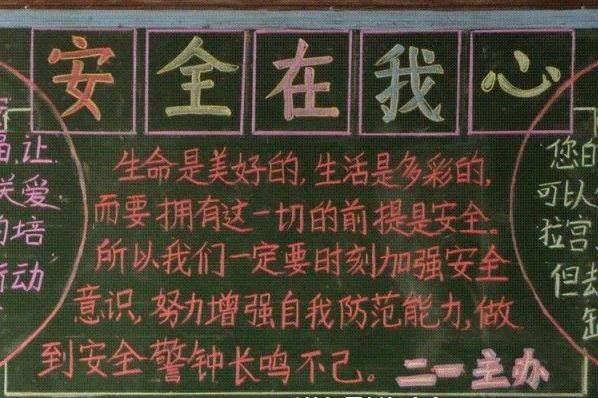 安全在我心
生命是美好的,生活是多彩的,
而要拥有这一切的前提是安全。
所以我们一定要时刻加强安全
意识,努力增强自我防范能力,做
到安全警钟长鸣不已。
二一主办
让
关爱
的培
动
您的
可以
拉宫
但却